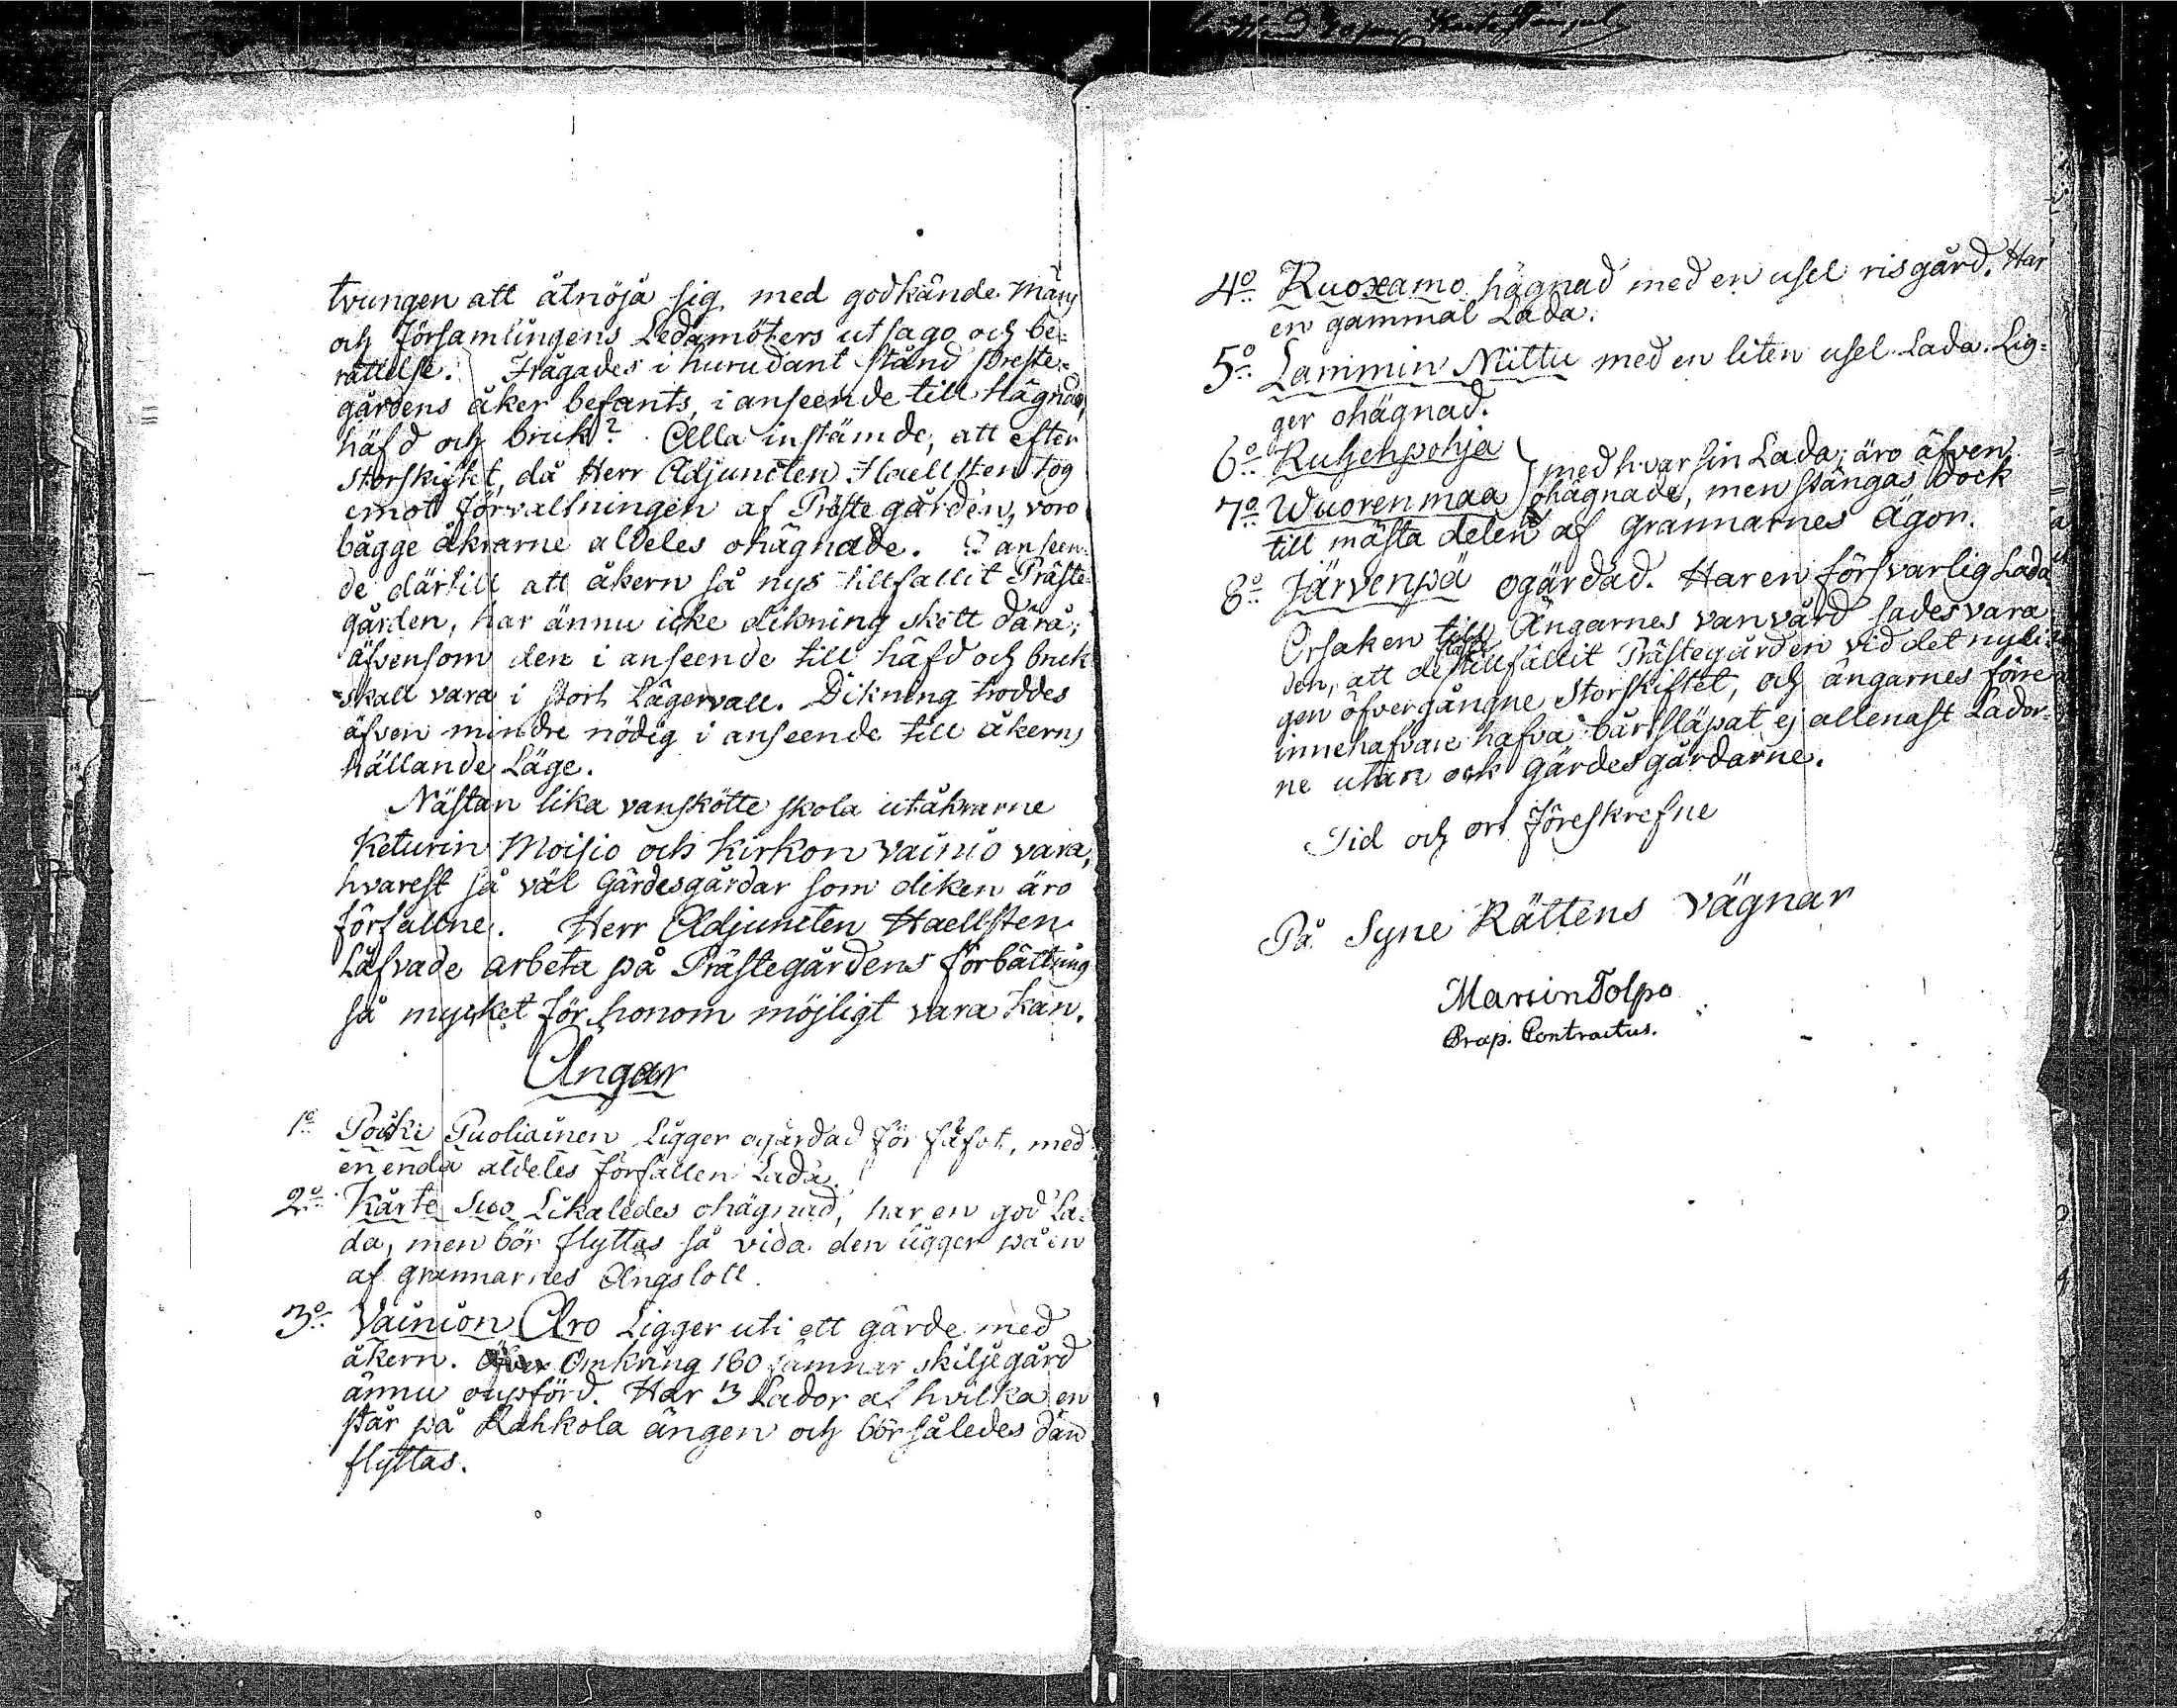 tvungen att åtnöja sig med godkände Mäns
och Församlingens Ledamöters utsago och be=
rättelse. Frågades i hurudant stånd Preste=
gårdens åker befants, i anseende till Hägnad,
häfd och bruk? Alla instämde, att efter
Storskiftet, då Herr Adjuncten Haellsten tog
emot förvaltningen af Prästegården, voro
bägge åkrarne aldeles ohägnade. I anseen=
de därtill att åkern så nys tillfallit Präste
gården, har ännu icke dikning skett därå;
äfvensom den i anseende till häfd och bruk
skall vara i stort Lägervall. Dikning troddes
äfven mindre nödig i anseende till åkerns
hällande Läge.
Nästan lika vanskötte skola utåkrarne
Keturin Moisio och Kirkon Vainio vara,
hvarest så väl Gärdesgårdar som diken äro
förfallne. Herr Adjuncten Haellsten
Låfvade arbeta på Prästegårdens förbättring
så mycket för honom möjligt vara kan.
Ängar
1o Poiki Puoliainen Ligger ogärdad för fäfot, med
en enda aldeles förfallen Lada.
2o Kärte Suo Likaledes ohägnad, har en god La=
da, men bör flyttas så vida den ligger på en
af grannarnes Ängslott.
3o Vainion Aro Ligger uti ett gärde med
åkern. Omkring 160 famnar skiljegård
ännu ouppförd. Har 3 Lador af hvilka en
står på Rahkola ängen och bör således dän
flyttas.
4o Ruoxamo hägnad med en usel risgård. Har
en gammal Lada.
5o Lammin Niittu med en liten usel Lada. Lig=
ger ohägnad.
6o Ruhenpohja
7o Wuorenmaa med hvar sin Lada, äro äfven
ohägnade, men stängas dock
till mästa delen af grannarnes ägor.
8o Järvenpä ogärdad. Har en försvarlig Lada
Orsaken till Ängarnes vanvård sades vara
den, att de tillfallit Prästegården vid det nyli=
gen öfvergångne Storskiftet, och ängarnes förre
innehafvare hafva bårtsläpat ej allenast Lador=
ne utan ock gärdesgårdarne.
Tid och ort föreskrefne
På Syne Rättens vägnar
Martin Tolpo
Præp. Contractus.